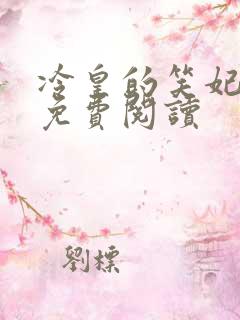 冷皇的笑妃
免費閱讀
劉標